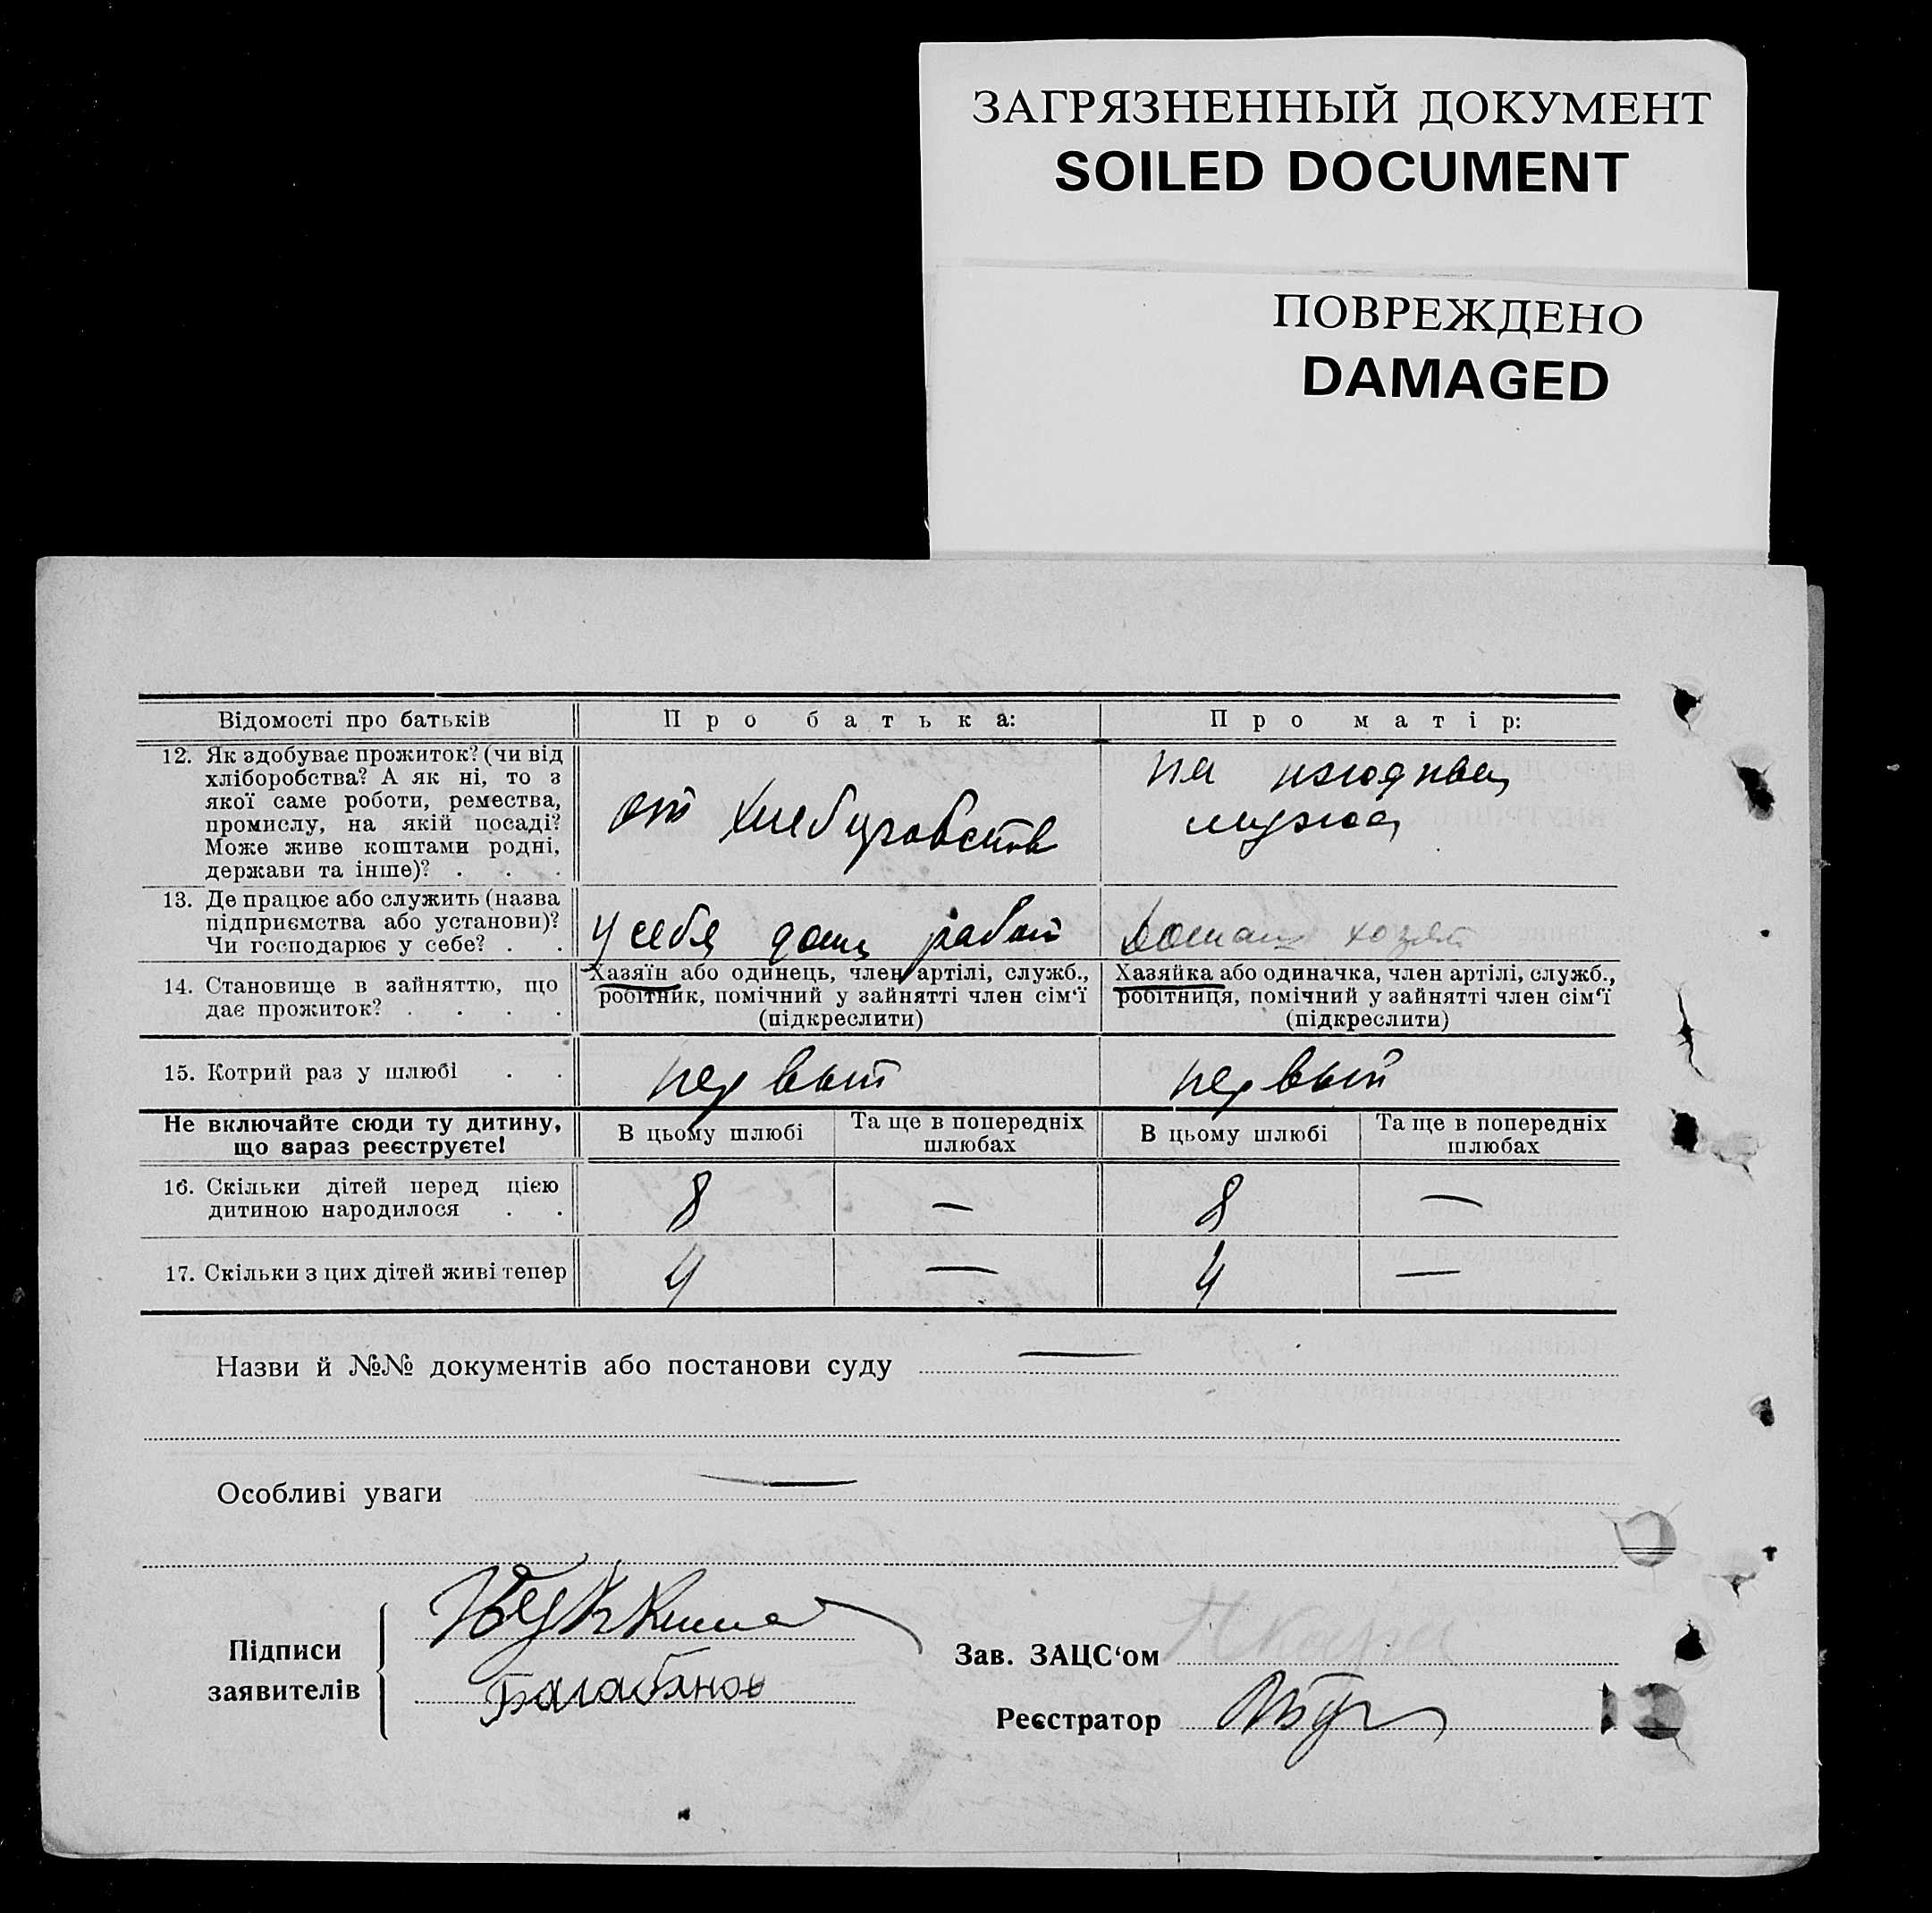 ЗАГРЯЗНЕННЫЙ ДОКУМЕНТ
SOILED DOCUMENT
ПОВРЕЖДЕНО
DAMAGED
Відомості про батьків
Про батька:
Про матір:
12. Як здобуває прожиток? (чи від
хліборобства? А як ні, то з
якої саме роботи, ремества,
промислу, на якій посаді?
Може живе коштами родні,
держави та інше)? . . .
от
на
мужа
13. Де працює або служить (назва
підприємства або установи)?
Чи господарює у себе? . .
у себя дома работ
Домаш хозяй
14. Становище в зайняттю, що
дає прожиток? . . . .
Хазяїн або одинець, член артілі, служб.,
робітник, помічний у зайнятті член сім‘ї
(підкреслити)
Хазяйка або одиначка, член артілі, служб.,
робітниця, помічний у зайнятті член сім‘ї
(підкреслити)
15. Котрий раз у шлюбі . .
первый
первый
Не включайте сюди ту дитину,
що зараз реєструєте!
В цьому шлюбі
Та ще в попередніх
шлюбах
В цьому шлюбі
Та ще в попередніх
шлюбах
16. Скільки дітей перед цією
дитиною народилося . .
8 — 8 —
17. Скільки з цих дітей живі тепер
4 — 4 —
Назви й №№ документів або постанови суду —
Особливі уваги —
Підписи
заявителів
Зав. ЗАЦС‘ом
Реєстратор